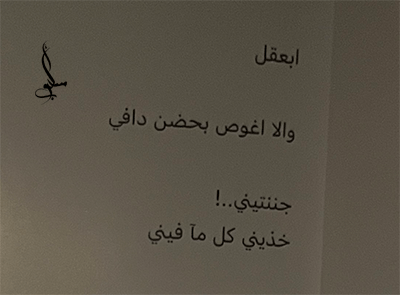 ابعقل
والا اغوص بحضن دافي
جننتيني..!
خذيني كل مآ فيني